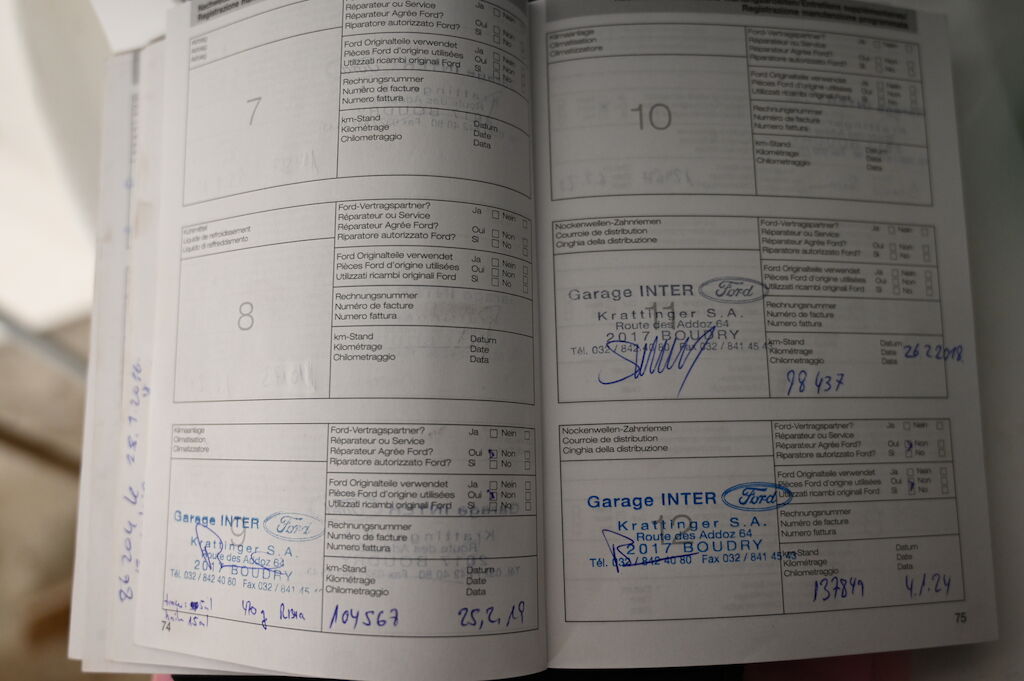 Réparateur ou Service
Réparateur Agrée Ford? Oui Non
Riparatore autorizzato Ford? Si No
Ford Originalteile verwendet Ja Nein
Pièces Ford d'origine utilisées Oui Non
Utilizzati ricambi originali Ford Si No
7
Rechnungsnummer
Numéro de facture
Numero fattura
km-Stand Datum
Kilométrage Date
Chilometraggio Data
Kühlmittel
Liquide de refroidissement
Liquido di raffreddamento
Ford-Vertragspartner? Ja Nein
Réparateur ou Service
Réparateur Agrée Ford? Oui Non
Riparatore autorizzato Ford? Si No
Ford Originalteile verwendet Ja Nein
Pièces Ford d'origine utilisées Oui Non
Utilizzati ricambi originali Ford Si No
8
Rechnungsnummer
Numéro de facture
Numero fattura
km-Stand Datum
Kilométrage Date
Chilometraggio Data
Klimaanlage
Climatisation
Climatizzatore
Ford-Vertragspartner? Ja Nein
Réparateur ou Service
Réparateur Agrée Ford? Oui Non
Riparatore autorizzato Ford? Si No
Ford Originalteile verwendet Ja Nein
Pièces Ford d'origine utilisées Oui Non
Utilizzati ricambi originali Ford Si No
9
Garage INTER Ford
Krattinger S.A.
Route des Addoz 64
2017 BOUDRY
Tél. 032 / 842 40 80 Fax 032 / 841 45
Rechnungsnummer
Numéro de facture
Numero fattura
km-Stand Datum
Kilométrage Date
Chilometraggio Data
15ml 470g
104567 25,2,19
74
86204
Klimaanlage
Climatisation
Climatizzatore
Ford-Vertragspartner? Ja Nein
Réparateur ou Service
Réparateur Agrée Ford? Oui Non
Riparatore autorizzato Ford? Si No
Ford Originalteile verwendet Ja Nein
Pièces Ford d'origine utilisées Oui Non
Utilizzati ricambi originali Ford Si No
10
Rechnungsnummer
Numéro de facture
Numero fattura
km-Stand Datum
Kilométrage Date
Chilometraggio Data
Nockenwellen-Zahnriemen
Courroie de distribution
Cinghia della distribuzione
Ford-Vertragspartner? Ja Nein
Réparateur ou Service
Réparateur Agrée Ford? Oui Non
Riparatore autorizzato Ford? Si No
Ford Originalteile verwendet Ja Nein
Pièces Ford d'origine utilisées Oui Non
Utilizzati ricambi originali Ford Si No
11
Garage INTER Ford
Krattinger S.A.
Route des Addoz 64
2017 BOUDRY
Tél. 032 / 842 40 80 Fax 032 / 841 45 43
Rechnungsnummer
Numéro de facture
Numero fattura
km-Stand Datum
Kilométrage Date 26.2.2018
Chilometraggio Data
98437
Nockenwellen-Zahnriemen
Courroie de distribution
Cinghia della distribuzione
Ford-Vertragspartner? Ja Nein
Réparateur ou Service
Réparateur Agrée Ford? Oui Non
Riparatore autorizzato Ford? Si No
Ford Originalteile verwendet Ja Nein
Pièces Ford d'origine utilisées Oui Non
Utilizzati ricambi originali Ford Si No
12
Garage INTER Ford
Krattinger S.A.
Route des Addoz 64
2017 BOUDRY
Tél. 032 / 842 40 80 Fax 032 / 841 45 43
Rechnungsnummer
Numéro de facture
Numero fattura
km-Stand Datum
Kilométrage Date
Chilometraggio Data
137849 4.1.24
75